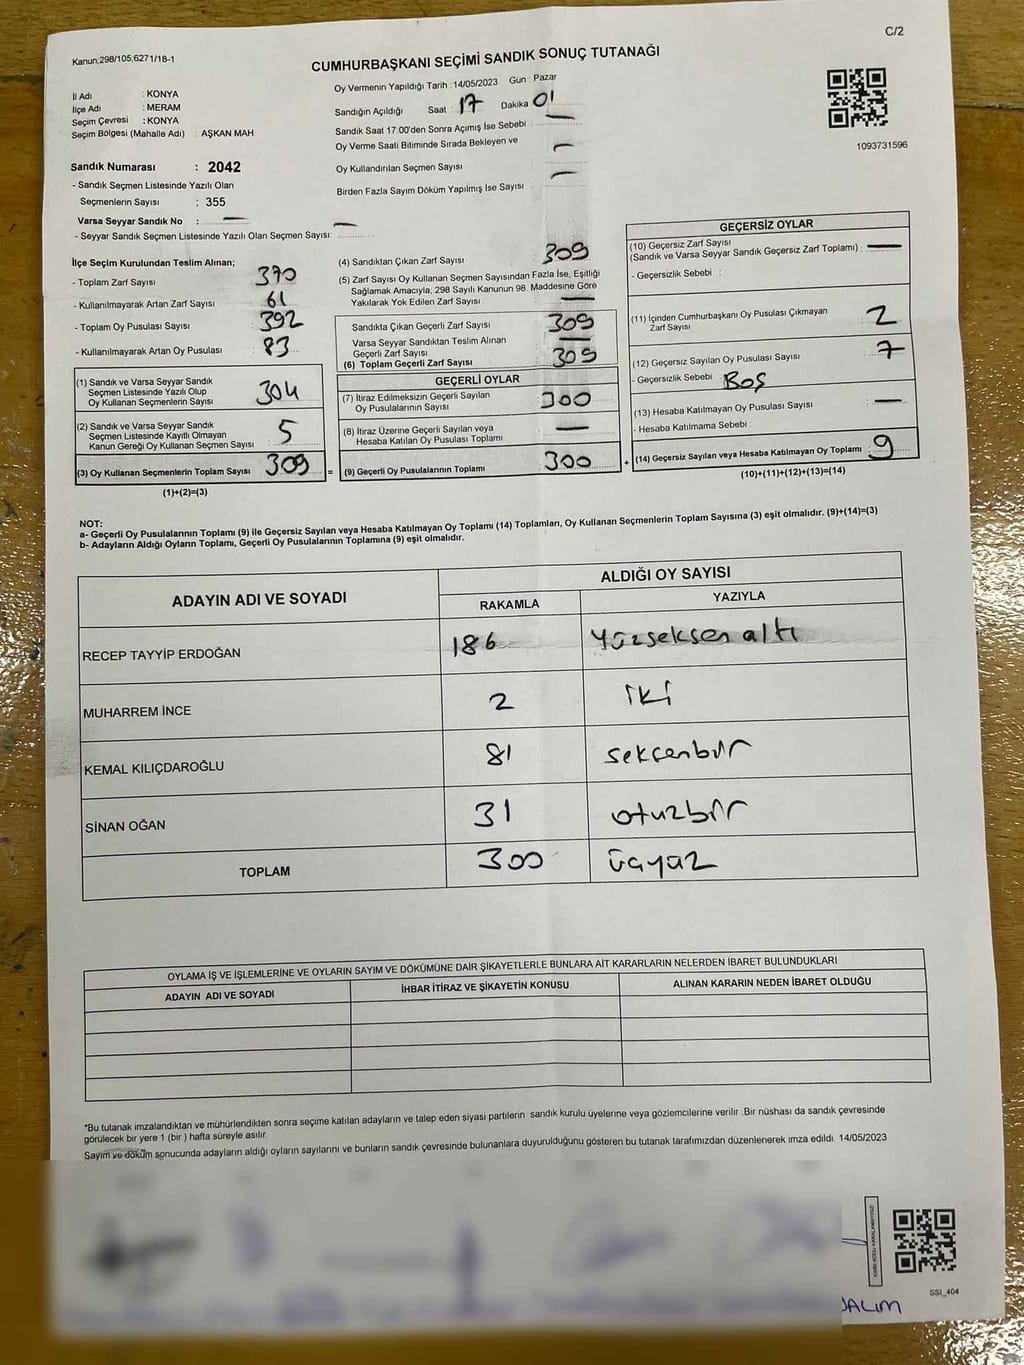 C/2
Kanun;298/105;6271/18-1
CUMHURBAŞKANI SEÇİMİ SANDIK SONUÇ TUTANAĞI
İl Adı : KONYA
İlçe Adı : MERAM
Seçim Çevresi : KONYA
Seçim Bölgesi (Mahalle Adı) : AŞKAN MAH
Oy Vermenin Yapıldığı Tarih : 14/05/2023 Gün : Pazar
Sandığın Açıldığı Saat : 17 Dakika 01
Sandık Saat 17:00'den Sonra Açımış İse Sebebi : —
Oy Verme Saati Bitiminde Sırada Bekleyen ve
Oy Kullandırılan Seçmen Sayısı : —
Birden Fazla Sayım Döküm Yapılmış İse Sayısı : —
1093731596
Sandık Numarası : 2042
- Sandık Seçmen Listesinde Yazılı Olan
Seçmenlerin Sayısı : 355
Varsa Seyyar Sandık No : —
- Seyyar Sandık Seçmen Listesinde Yazılı Olan Seçmen Sayısı: —
İlçe Seçim Kurulundan Teslim Alınan;
- Toplam Zarf Sayısı 370
- Kullanılmayarak Artan Zarf Sayısı 61
- Toplam Oy Pusulası Sayısı 392
- Kullanılmayarak Artan Oy Pusulası 83
(1) Sandık ve Varsa Seyyar Sandık
Seçmen Listesinde Yazılı Olup
Oy Kullanan Seçmenlerin Sayısı 304
(2) Sandık ve Varsa Seyyar Sandık
Seçmen Listesinde Kayıtlı Olmayan
Kanun Gereği Oy Kullanan Seçmen Sayısı 5
(3) Oy Kullanan Seçmenlerin Toplam Sayısı 309 =
(1)+(2)=(3)
(4) Sandıktan Çıkan Zarf Sayısı 309
(5) Zarf Sayısı Oy Kullanan Seçmen Sayısından Fazla İse, Eşitliği
Sağlamak Amacıyla; 298 Sayılı Kanunun 98. Maddesine Göre
Yakılarak Yok Edilen Zarf Sayısı —
Sandıkta Çıkan Geçerli Zarf Sayısı 309
Varsa Seyyar Sandıktan Teslim Alınan
Geçerli Zarf Sayısı —
(6) Toplam Geçerli Zarf Sayısı 309
GEÇERLİ OYLAR
(7) İtiraz Edilmeksizin Geçerli Sayılan
Oy Pusulalarının Sayısı 300
(8) İtiraz Üzerine Geçerli Sayılan veya
Hesaba Katılan Oy Pusulası Toplamı —
(9) Geçerli Oy Pusulalarının Toplamı 300 +
GEÇERSİZ OYLAR
(10) Geçersiz Zarf Sayısı
(Sandık ve Varsa Seyyar Sandık Geçersiz Zarf Toplamı) : —
- Geçersizlik Sebebi :
(11) İçinden Cumhurbaşkanı Oy Pusulası Çıkmayan
Zarf Sayısı 2
(12) Geçersiz Sayılan Oy Pusulası Sayısı 7
- Geçersizlik Sebebi BOŞ
(13) Hesaba Katılmayan Oy Pusulası Sayısı —
- Hesaba Katılmama Sebebi :
(14) Geçersiz Sayılan veya Hesaba Katılmayan Oy Toplamı 9
(10)+(11)+(12)+(13)=(14)
NOT:
a- Geçerli Oy Pusulalarının Toplamı (9) ile Geçersiz Sayılan veya Hesaba Katılmayan Oy Toplamı (14) Toplamları, Oy Kullanan Seçmenlerin Toplam Sayısına (3) eşit olmalıdır. (9)+(14)=(3)
b- Adayların Aldığı Oyların Toplamı, Geçerli Oy Pusulalarının Toplamına (9) eşit olmalıdır.
ADAYIN ADI VE SOYADI
ALDIĞI OY SAYISI
RAKAMLA YAZIYLA
RECEP TAYYİP ERDOĞAN 186 Yüzseksen altı
MUHARREM İNCE 2 iki
KEMAL KILIÇDAROĞLU 81 seksenbir
SİNAN OĞAN 31 otuzbir
TOPLAM 300 üçyüz
OYLAMA İŞ VE İŞLEMLERİNE VE OYLARIN SAYIM VE DÖKÜMÜNE DAİR ŞİKAYETLERLE BUNLARA AİT KARARLARIN NELERDEN İBARET BULUNDUKLARI
ADAYIN ADI VE SOYADI İHBAR İTİRAZ VE ŞİKAYETİN KONUSU ALINAN KARARIN NEDEN İBARET OLDUĞU
*Bu tutanak imzalandıktan ve mühürlendikten sonra seçime katılan adayların ve talep eden siyasi partilerin sandık kurulu üyelerine veya gözlemcilerine verilir .Bir nüshası da sandık çevresinde
görülecek bir yere 1 (bir ) hafta süreyle asılır.
Sayım ve döküm sonucunda adayların aldığı oyların sayılarını ve bunların sandık çevresinde bulunanlara duyurulduğunu gösteren bu tutanak tarafımızdan düzenlenerek imza edildi. 14/05/2023
SSI_404